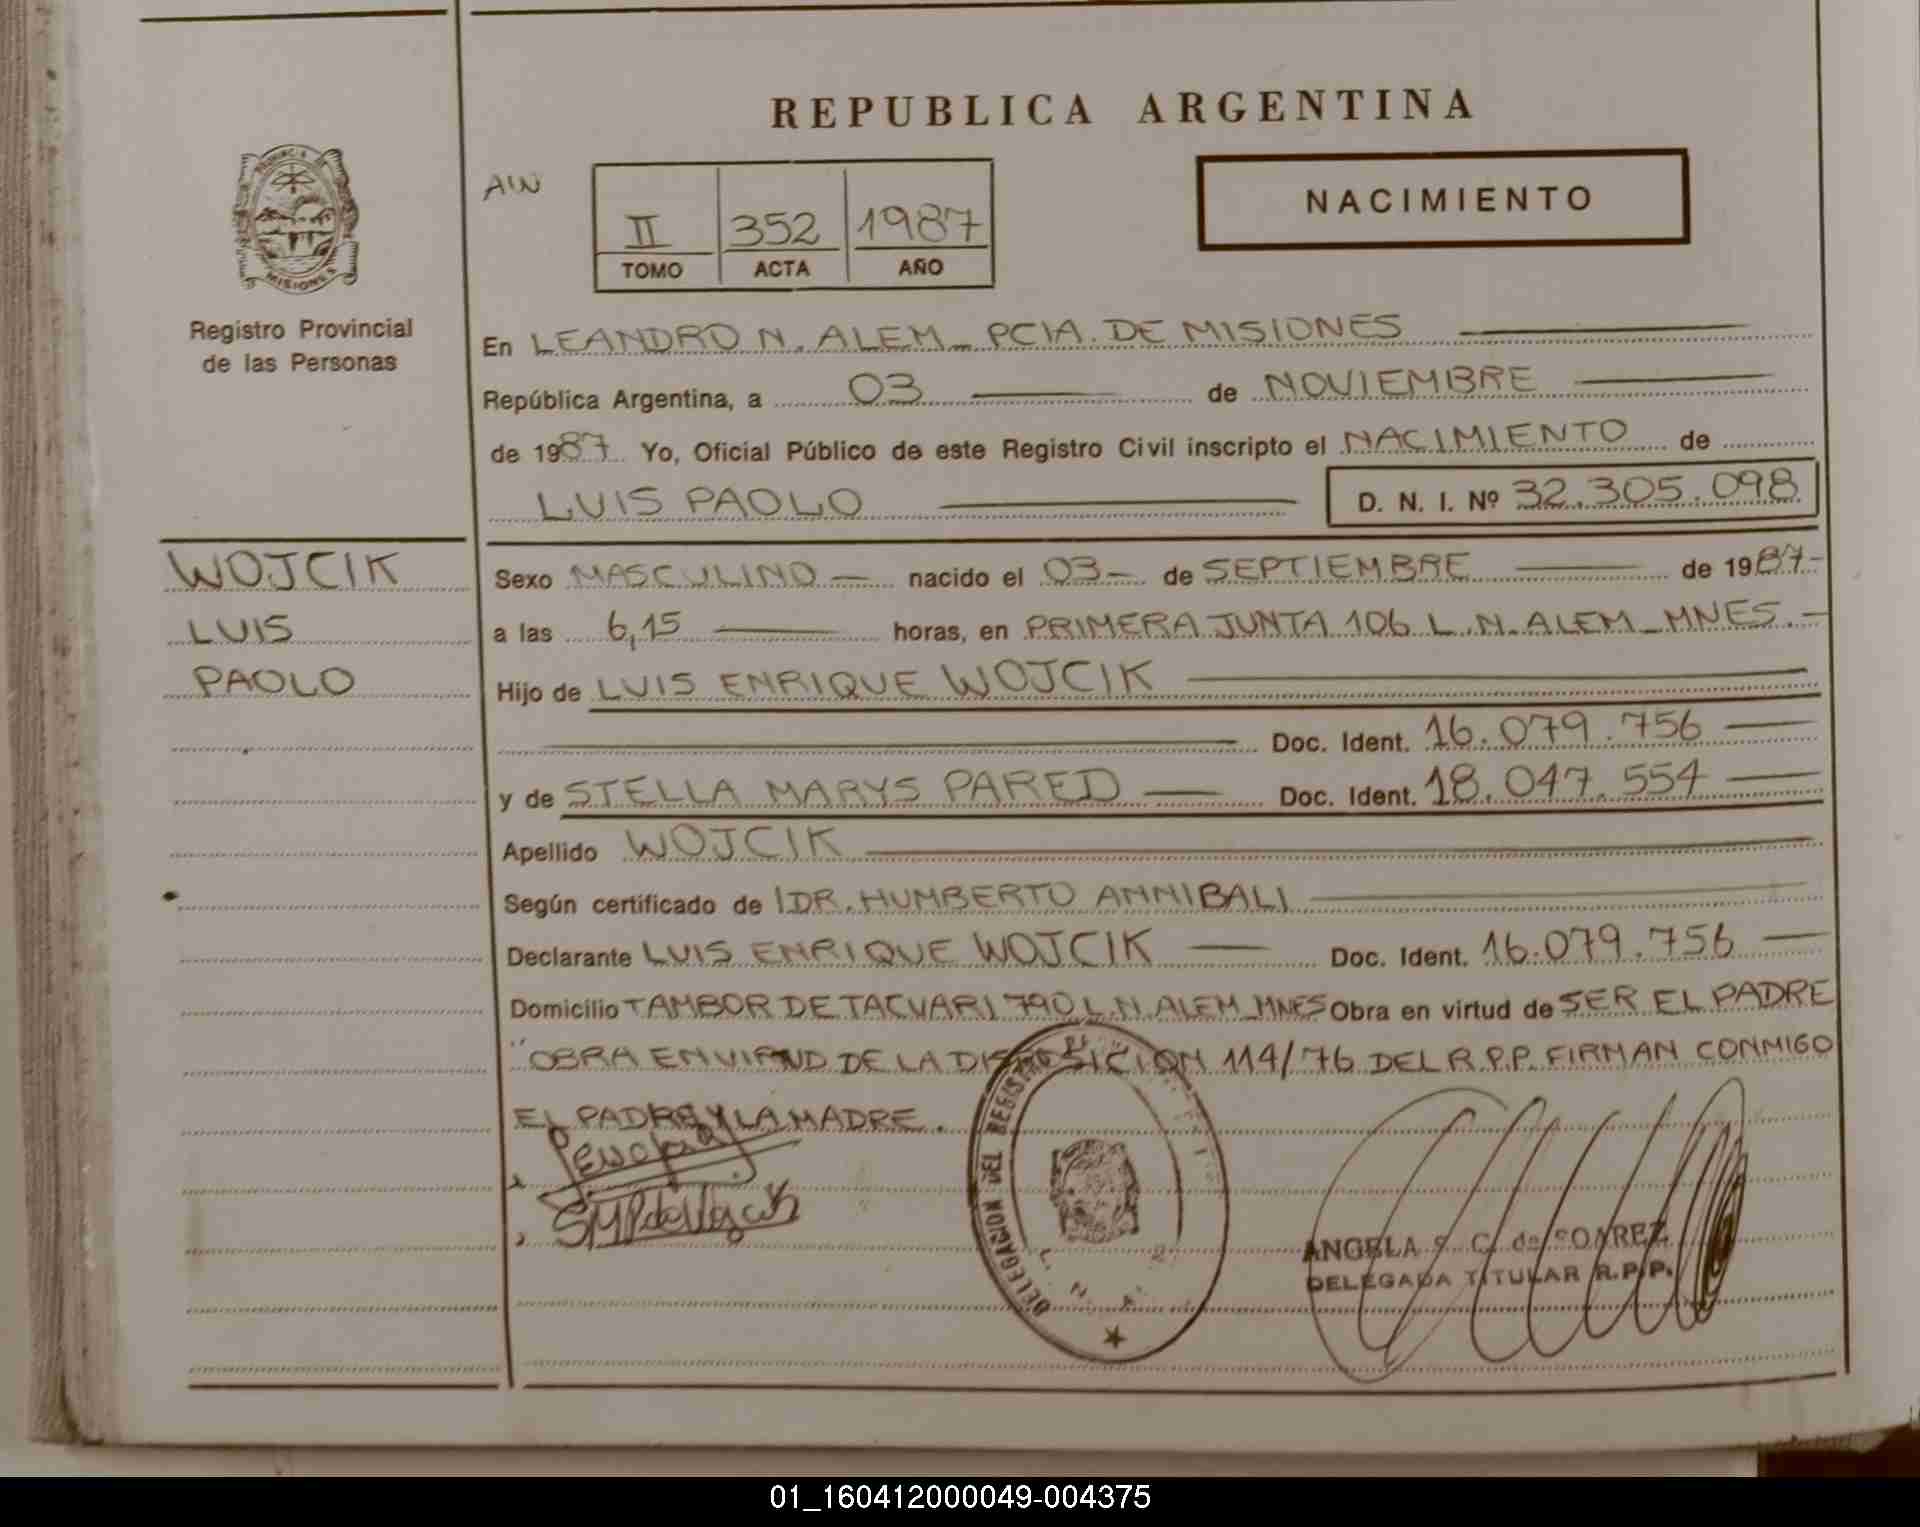 REPUBLICA ARGENTINA
PROVINCIA
MISIONES
Registro Provincial
de las Personas
II 352 1987
TOMO ACTA AÑO
NACIMIENTO
En LEANDRO N. ALEM_ PCIA. DE MISIONES
República Argentina, a 03 de NOVIEMBRE
de 1987 Yo, Oficial Público de este Registro Civil inscripto el NACIMIENTO de
LUIS PAOLO D. N. I. Nº 32.305.098
WOJCIK
LUIS
PAOLO
Sexo MASCULINO nacido el 03 de SEPTIEMBRE de 1987
a las 6,15 horas, en PRIMERA JUNTA 106 L.N. ALEM_MNES.
Hijo de LUIS ENRIQUE WOJCIK
Doc. Ident. 16.079.756
y de STELLA MARYS PARED Doc. Ident. 18.047.554
Apellido WOJCIK
Según certificado de DR. HUMBERTO ANNIBALI
Declarante LUIS ENRIQUE WOJCIK Doc. Ident. 16.079.756
Domicilio TAMBOR DE TACUARI 790 L.N. ALEM_MNES Obra en virtud de SER EL PADRE
"OBRA EN VIRTUD DE LA DISPOSICION 114/76 DEL R.P.P. FIRMAN CONMIGO
EL PADRE Y LA MADRE.
DELEGACION DEL REGISTRO
ANGELA S. C. de SOAREZ
DELEGADA TITULAR R.P.P.
01_160412000049-004375